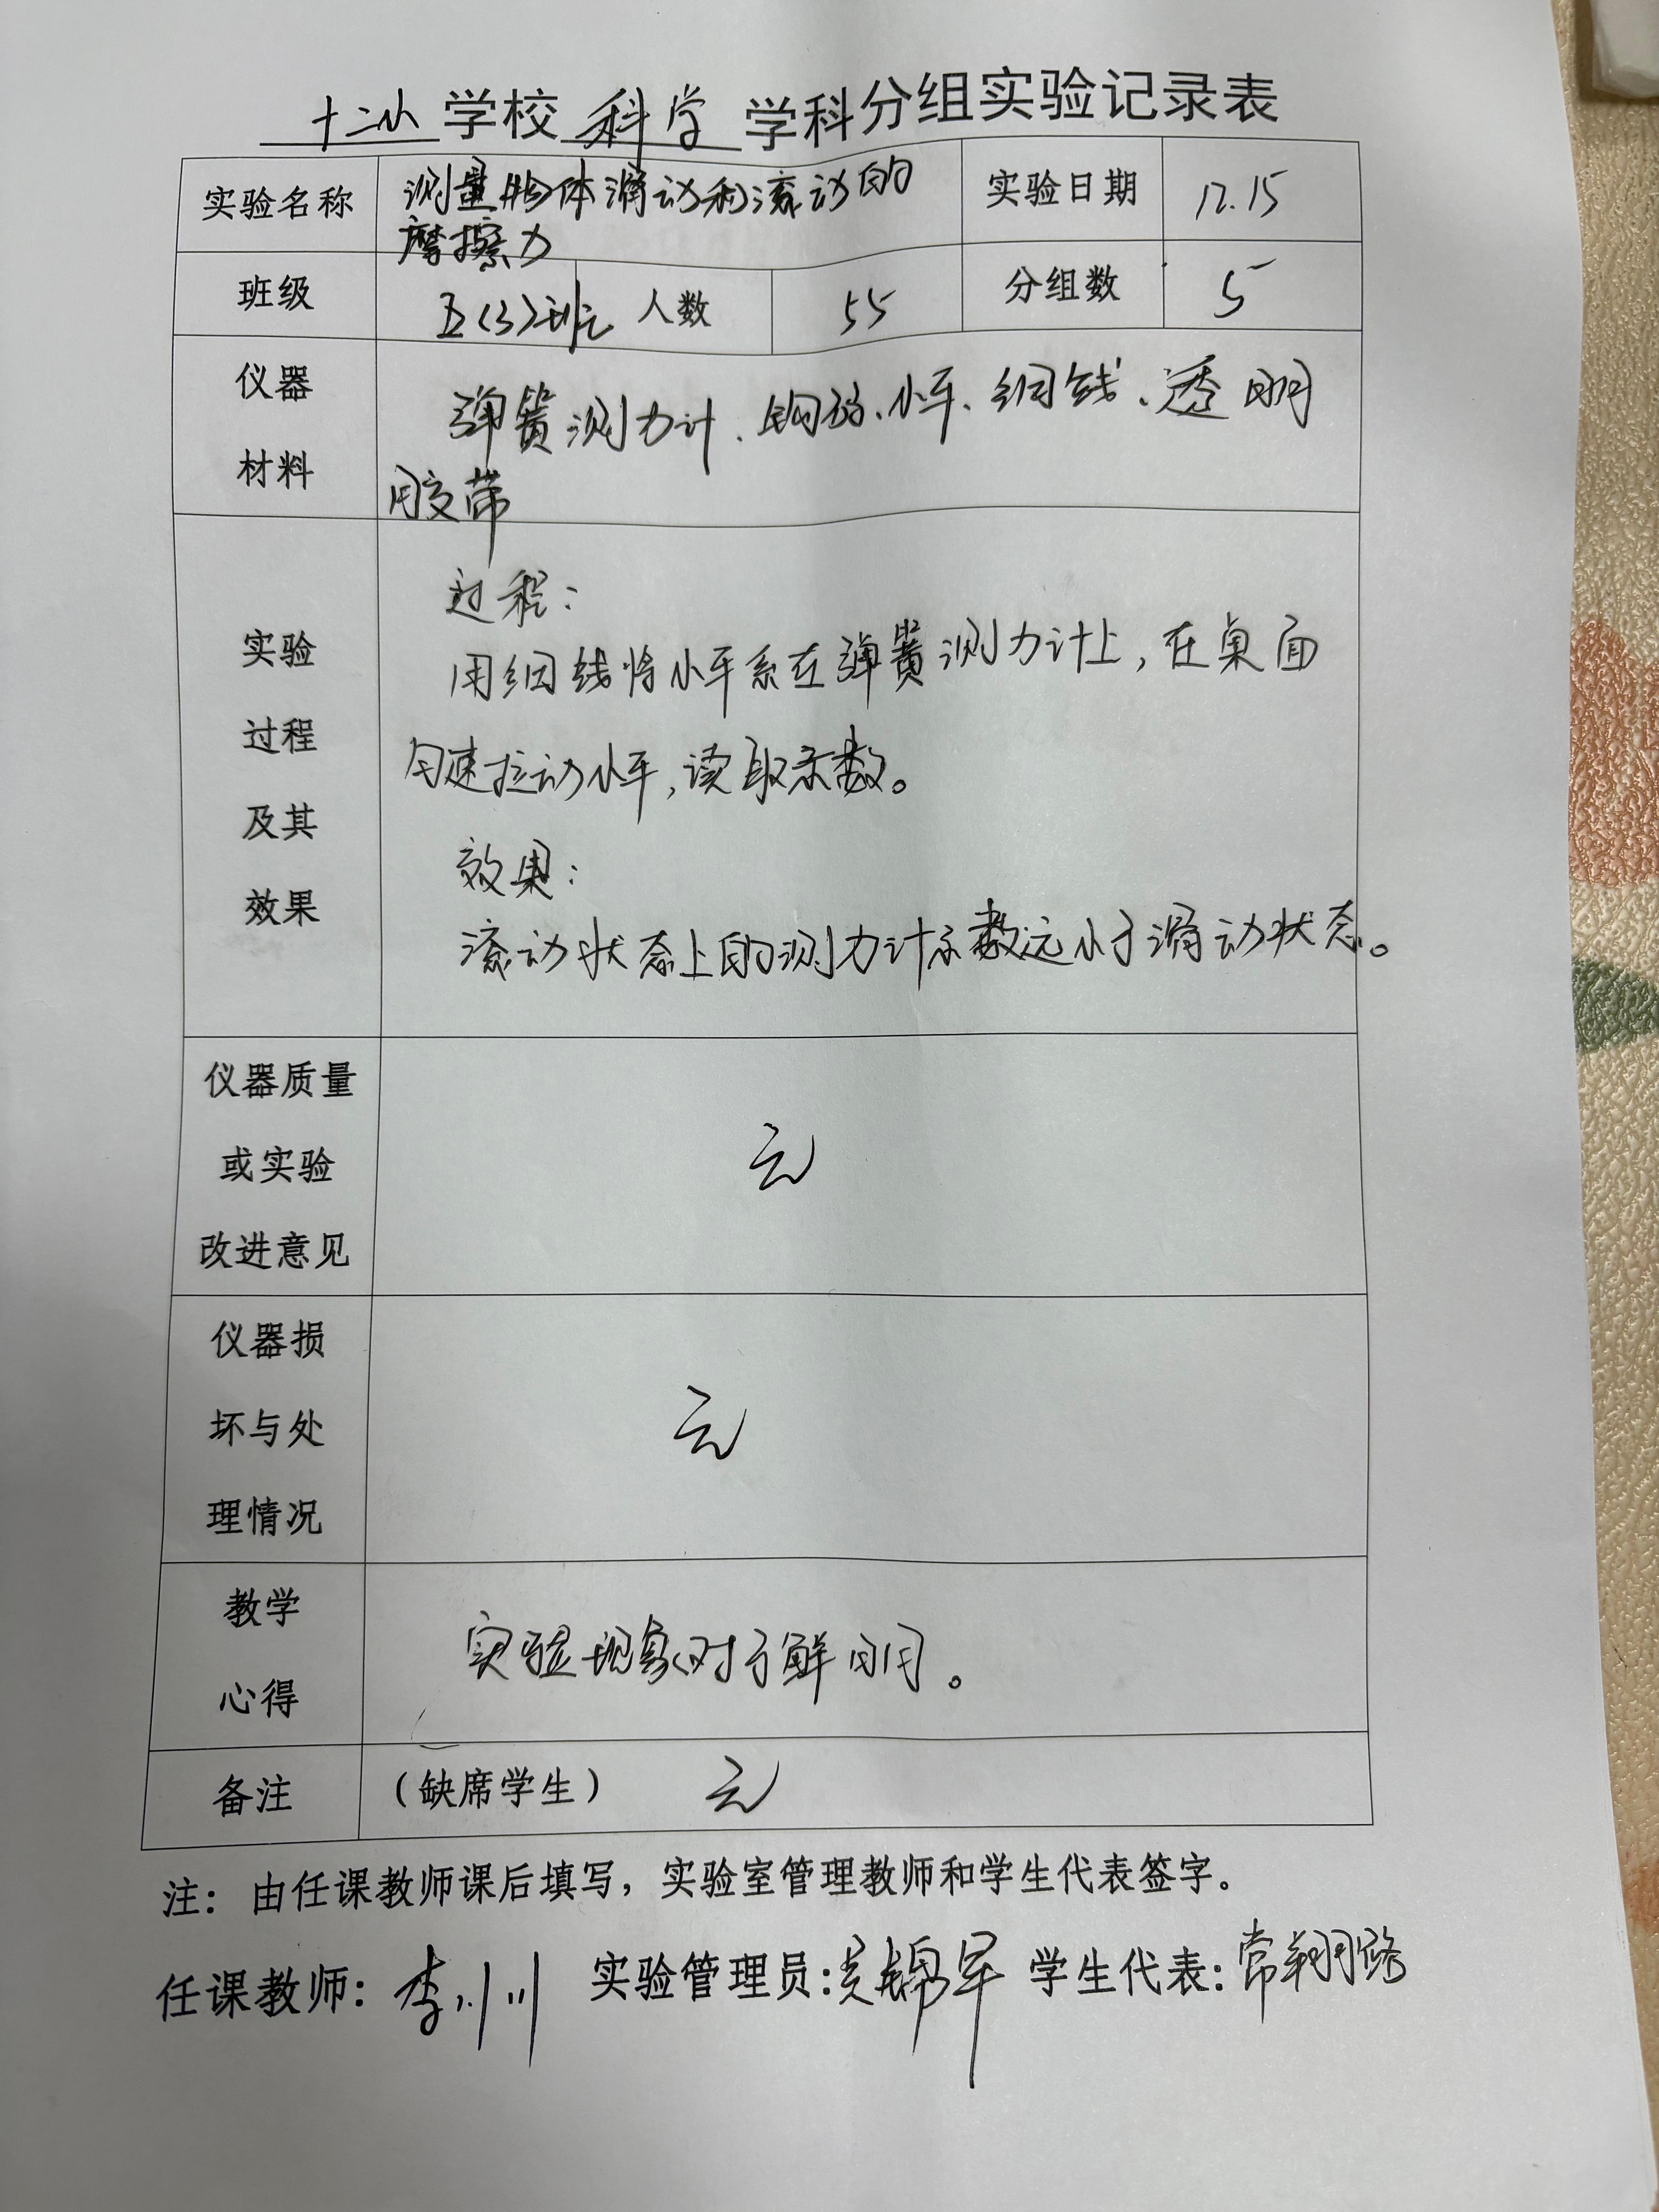 十二小 学校 科学 学科分组实验记录表
实验名称 测量物体滑动和滚动的摩擦力 实验日期 12.15
班级 五(3)班 人数 55 分组数 5
仪器材料
弹簧测力计、钩码、小车、细线、透明
胶带
实验过程及其效果
过程：
用细线将小车系在弹簧测力计上，在桌面
匀速拉动小车，读取示数。
效果：
滚动状态上的测力计示数远小于滑动状态。
仪器质量
或实验
改进意见
无
仪器损
坏与处
理情况
无
教学
心得
实验现象对于鲜明。
备注 （缺席学生） 无
注：由任课教师课后填写，实验室管理教师和学生代表签字。
任课教师： 实验管理员： 锦军 学生代表：常翔